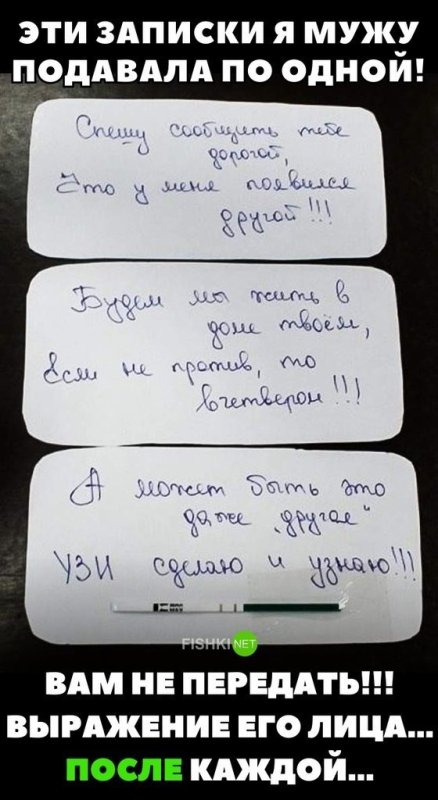 ЭТИ ЗАПИСКИ Я МУЖУ
ПОДАВАЛА ПО ОДНОЙ!
Спешу сообщить тебе
дорогой,
Что у меня появился
другой!!!
Будем мы жить в
доме твоём,
Если не против, то
вчетвером!!!
А может быть это
даже "другая"
УЗИ сделаю и узнаю!!!
FISHKI NET
ВАМ НЕ ПЕРЕДАТЬ!!!
ВЫРАЖЕНИЕ ЕГО ЛИЦА...
ПОСЛЕ КАЖДОЙ...